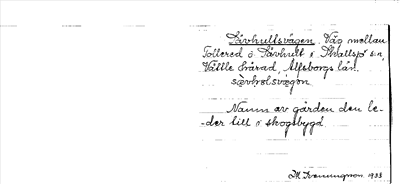 Sävhultsvägen. Väg mellan
Tollered o. Sävhult i Skallsjö sn,
Vättle härad, Älfsborgs län.
sävhelsvägen
Namn av gården den le-
der till i skogsbygd.
M. 1933